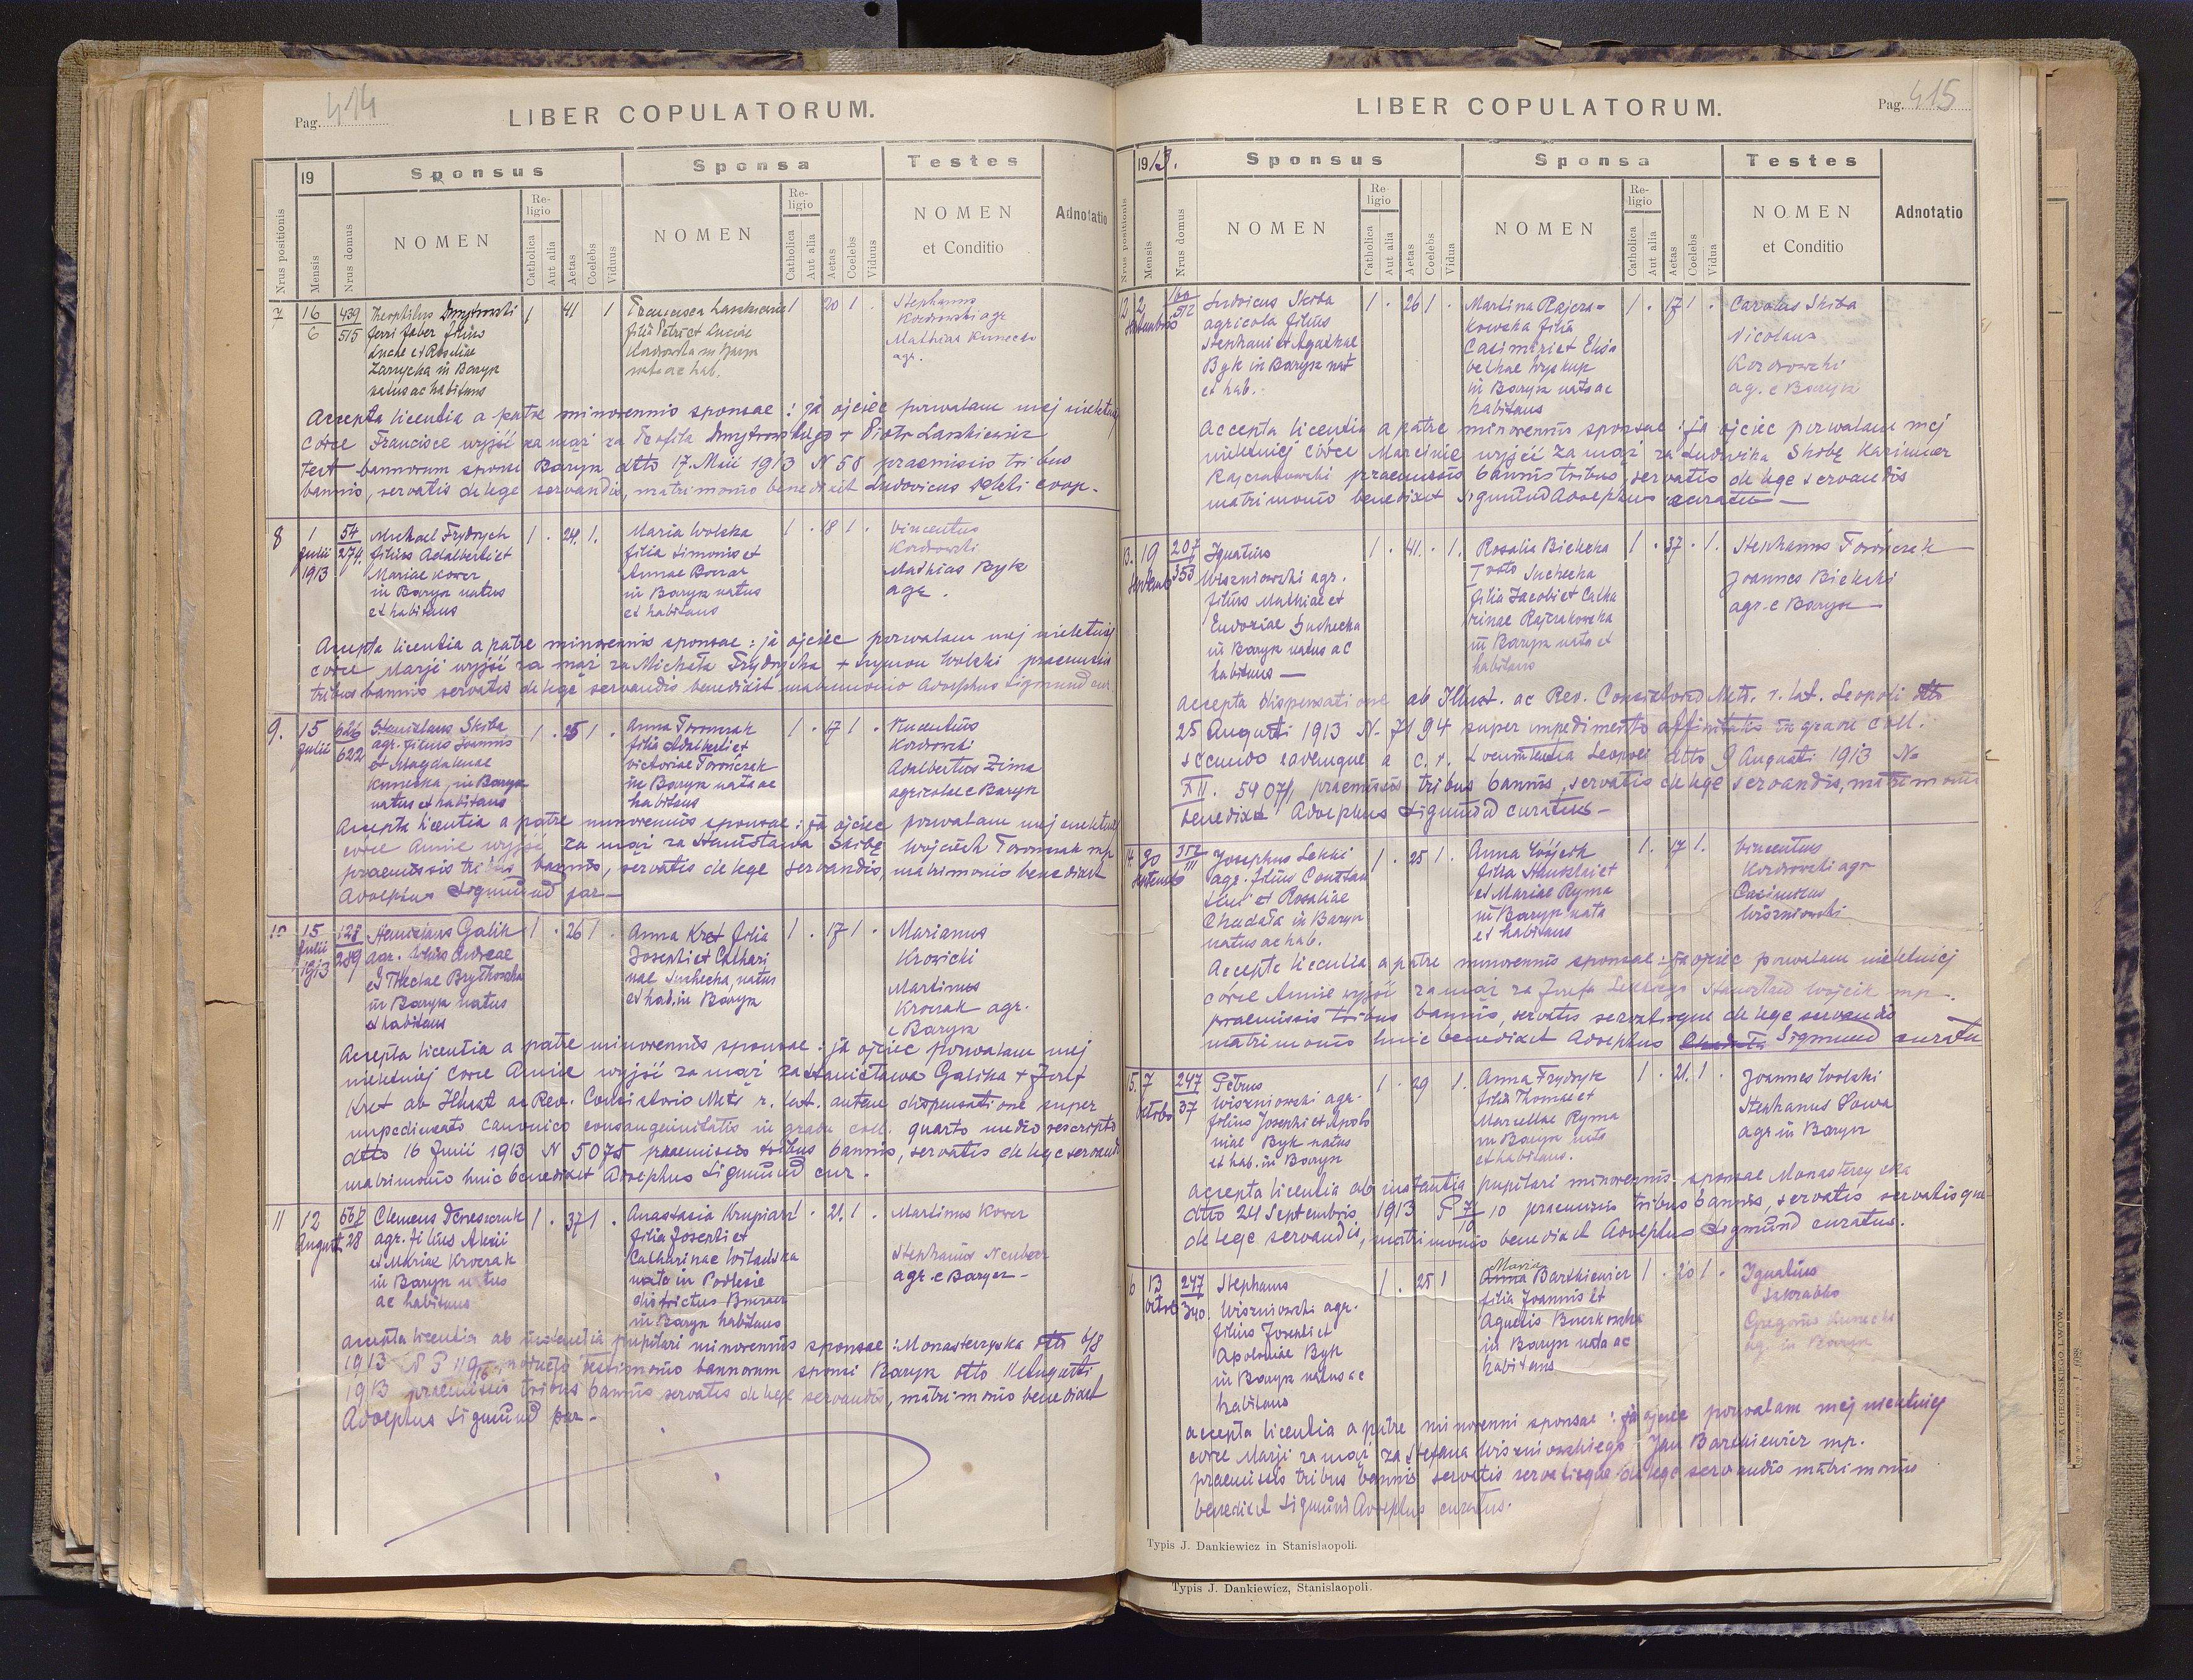 Pag. 414
LIBER COPULATORUM.
19
Sponsus
Sponsa
Testes
Nrus positionis
Mensis
Nrus domus
NOMEN
Re-
ligio
Catholica
Aut alia
Aetas
Coelebs
Viduus
NOMEN
Re-
ligio
Catholica
Aut alia
Aetas
Coelebs
Vidua
NOMEN
et Conditio
Adnotatio
7
16
6
439
515
Theophilus Dmytrowski
ferri faber filius
Lucae et Rosaliae
Zarycka in Barysz
natus ac habitans
1
41
1
Francisca Laszkiewicz
filia Petri et Luciae
Kordowska in Barysz
nata ac hab.
1
20
1
Stephanus
Kordowski agr.
Mathias Kunecki
agr.
Accepta licentia a patre minorennis sponsae: ja ojciec pozwalam mej nieletniej
córce Francisce wyjść za mąż za Teofila Dmytrowskiego + Piotr Laszkiewicz
test bannorum sponsi Barysz dtto 17. Maii 1913 N 58 praemissis tribus
bannis, servatis de lege servandis, matrimonio benedixit Ludovicus coop.
8
1
Julii
1913
54
274
Michael Frydrych
filius Adalberti et
Mariae Kower
in Barysz natus
et habitans
1 . 24. 1.
Maria Wolska
filia Simonis et
Annae
in Barysz natus
et habitans
1 . 18 1 .
Vincentius
Kordowski
Mathias Byk
agr.
Accepta licentia a patre minorennis sponsae: ja ojciec pozwalam mej nieletniej
córce Marji wyjść za mąż za Michała Frydrycha + Szymon Wolski praemissis
tribus bannis servatis de lege servandis benedixit matrimonio Adolphus Sigmund cur.
9.
15
Julii
626
622
Stanislaus Skiba
agr. filius Joannis
et Magdalenae
Kunecka, in Barysz
natus et habitans
1 . 25 1 .
Anna Toronczak
filia Adalberti et
Victoriae Torończak
in Barysz nata ac
habitans
1 . 17 1 .
Vincentius
Kordowski
Adalbertus Zima
agricolae e Barysz
Accepta licentia a patre minorennis sponsae: ja ojciec pozwalam mej nieletniej
córce Annie wyjść za mąż za Stanisława Skibę Wojciech Toronczak mp
praemissis tribus bannis, servatis de lege servandis, matrimonio benedixit
Adolphus Sigmund par—
10
15
Julii
1913
128
289
Stanislaus Galik
agr. filius Andreae
et Theclae
in Barysz natus
et habitans
1 . 26 1 .
Anna Kret filia
Josephi et Cathari
nae Suchecka, natus
et hab. in Barysz
1 . 17 1 .
Marianus
Krowicki
Martinus
Kroczak agr.
e Barysz
Accepta licentia a patre minorennis sponsae: ja ojciec pozwalam mej
nieletniej córce Annie wyjść za mąż za Stanisława Galika + Józef
Kret ab Illust ac Rev. Consistorio Metr. r. lat. autem dispensatione super
impedimento canonico consanguinitatis in gradu coll. quarto medio rescripto
dtto 16 Junii 1913 N 5075 praemissis tribus bannis, servatis de lege servandis
matrimonio huic benedixit Adolphus Sigmund cur.
11
12
August.
567
28
Clemens
agr. filius Alexii
et Mariae Kroczak
in Barysz natus
ac habitans
1 . 37 1 .
Anastasia Krupiarz
filia Josephi et
Catharinae
nata in Podlesie
districtus Buczacz
in Barysz habitans
1 . 21. 1 .
Martinus Kower
Stephanus Neuberr
agr. e Barysz —
accepta licentia ab instantia pupilari minorennis sponsae: Monasterzyska dtto 6/8
1913 testimonio bannorum sponsi Barysz dtto 11 Augusti
1913 praemissis tribus bannis servatis de lege servandis, matrimonio benedixit
Adolphus Sigmund par.
Pag. 415
LIBER COPULATORUM.
1913.
Sponsus
Sponsa
Testes
Nrus positionis
Mensis
Nrus domus
NOMEN
Re-
ligio
Catholica
Aut alia
Aetas
Coelebs
Vidua
NOMEN
Re-
ligio
Catholica
Aut alia
Aetas
Coelebs
Vidua
NOMEN
et Conditio
Adnotatio
12
2
Septembris
512
Ludvicus Skiba
agricola filius
Stephani et Agathae
Byk in Barysz nat
et hab.
1 . 26 1 .
Martina Rajcza-
kowska filia
Casimiri et Elisa
bethae Wyskup
in Barysz nata ac
habitans
1 . 17 1 .
Carolus Skiba
Nicolaus
Kordowski
ag. e Barysz
Accepta licentia a patre minorennis sponsae: ja ojciec pozwalam mej
nieletniej córce Marcinie wyjść za mąż za Ludwika Skibę Kazimierz
Rajczakowski praemissis bannis tribus, servatis de lege servandis
matrimonio benedixit Sigmund Adolphus curatus —
13.
19
Septemb
207
353
Ignatius
Wiszniowski agr.
filius Mathiae et
Eudoxiae Suchecka
in Barysz natus ac
habitans —
1 . 41 . 1.
Rosalia Bielska
1 voto Suchecka
filia Jacobi et Catha
rinae Rajczakowska
in Barysz nata et
habitans
1 . 37 . 1.
Stephanus Torończak
Joannes Bielski
agr. e Barysz
accepta dispensatione ab Illust. ac Rev. Consistorio Metr. r. lat. Leopoli dtto
25 Augusti 1913 N. 7194 super impedimento affinitatis in gradu coll.
secundo eademque a c. r. Locumtentia Leopoli dtto 9 Augusti 1913 No
XII. 59071, praemissis tribus bannis, servatis de lege servandis, matrimonio
benedixit Adolphus Sigmund curatus —
14
30
Septemb
352
111
Josephus Lekki
agr. filius Constan
tini et Rosaliae
Chudała in Barysz
natus ac hab.
1 . 25 1 .
Anna Wójcik
filia Stanislai et
et Mariae Ryma
in Barysz nata
et habitans
1. 17 1.
Vincentius
Kordowski agr
Casimirus
Wiszniowski
Accepta licentia a patre minorennis sponsae: ja ojciec pozwalam nieletniej
córce Annie wyjść za mąż za Józefa Lekkiego Stanisław Wójcik mp.
praemissis tribus bannis, servatis servatisque de lege servandis
matrimonio huic benedixit Adolphus Sigmund curatu
5.
7
Octobr
247
37
Petrus
Wiszniowski agr.
filius Josephi et Apolo
niae Byk natus
et hab. in Barysz
1 . 29 1.
Anna Frydryk
filia Thomae et
Marcellae Ryma
in Barysz nata
et habitans.
1 . 21. 1 .
Joannes Wolski
Stephanus Sowa
agr in Barysz
accepta licentia ab instantia pupilari minorennis sponsae Monasterzyska
dtto 24 Septembris 1913 P 7/10 10 praemissis tribus bannis, servatis servatisque
de lege servandis, matrimonio benedixit Adolphus Sigmund curatus.
6
13
Octob
247
340
Stephanus
Wiszniowski agr.
filius Josephi et
Apoloniae Byk
in Barysz natus ac
habitans
1 . 25 1
Maria
Anna Bartkiewicz
filia Joannis et
Agnetis Buczkowska
in Barysz nata ac
habitans
1 . 20 1 .
Ignatius
Gregorius Kunecki
ag. in Barysz
accepta licentia a patre minorenni sponsae: ja ojciec pozwalam mej nieletniej
córce Marji za mąż za Stefana Wiszniowskiego Jan Bartkiewicz mp.
praemissis tribus bannis servatis servatisque de lege servandis matrimonio
benedixit Sigmund Adolphus curatus.
Typis J. Dankiewicz in Stanislaopoli.
Typis J. Dankiewicz, Stanislaopoli.